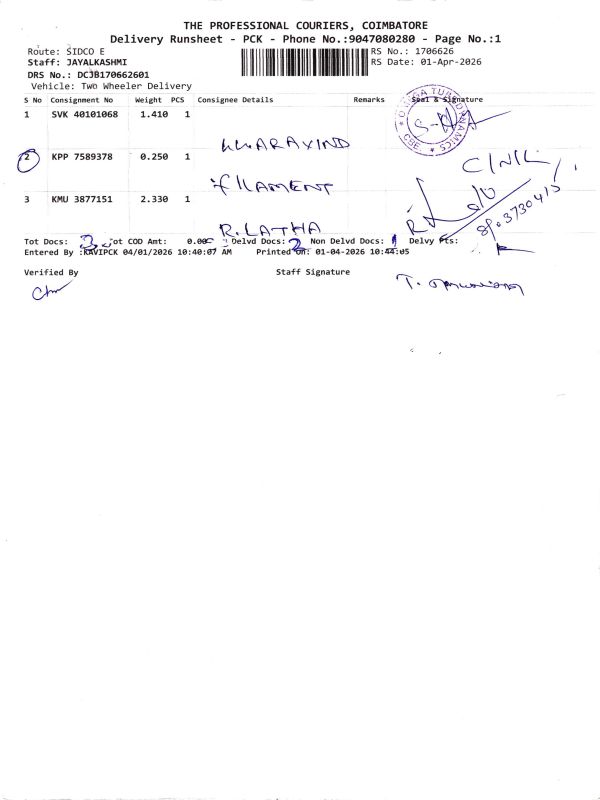 THE PROFESSIONAL COURIERS, COIMBATORE
Delivery Runsheet - PCK - Phone No.:9047080280 - Page No.:1
Route: SIDCO E
RS No.: 1706626
Staff: JAYALKASHMI
RS Date: 01-Apr-2026
DRS No.: DCJB170662601
Vehicle: Two Wheeler Delivery
S No Consignment No Weight PCS Consignee Details Remarks Seal & Signature
1 SVK 40101068 1.410 1
ARAVIND
2 KPP 7589378 0.250 1
FILAMENT
3 KMU 3877151 2.330 1
R. LATHA
Tot Docs: 3 Tot COD Amt: 0.00 Delvd Docs: 2 Non Delvd Docs: 1 Delvy Pts:
Entered By :RAVIPCK 04/01/2026 10:40:07 AM Printed On: 01-04-2026 10:44:05
Verified By Staff Signature